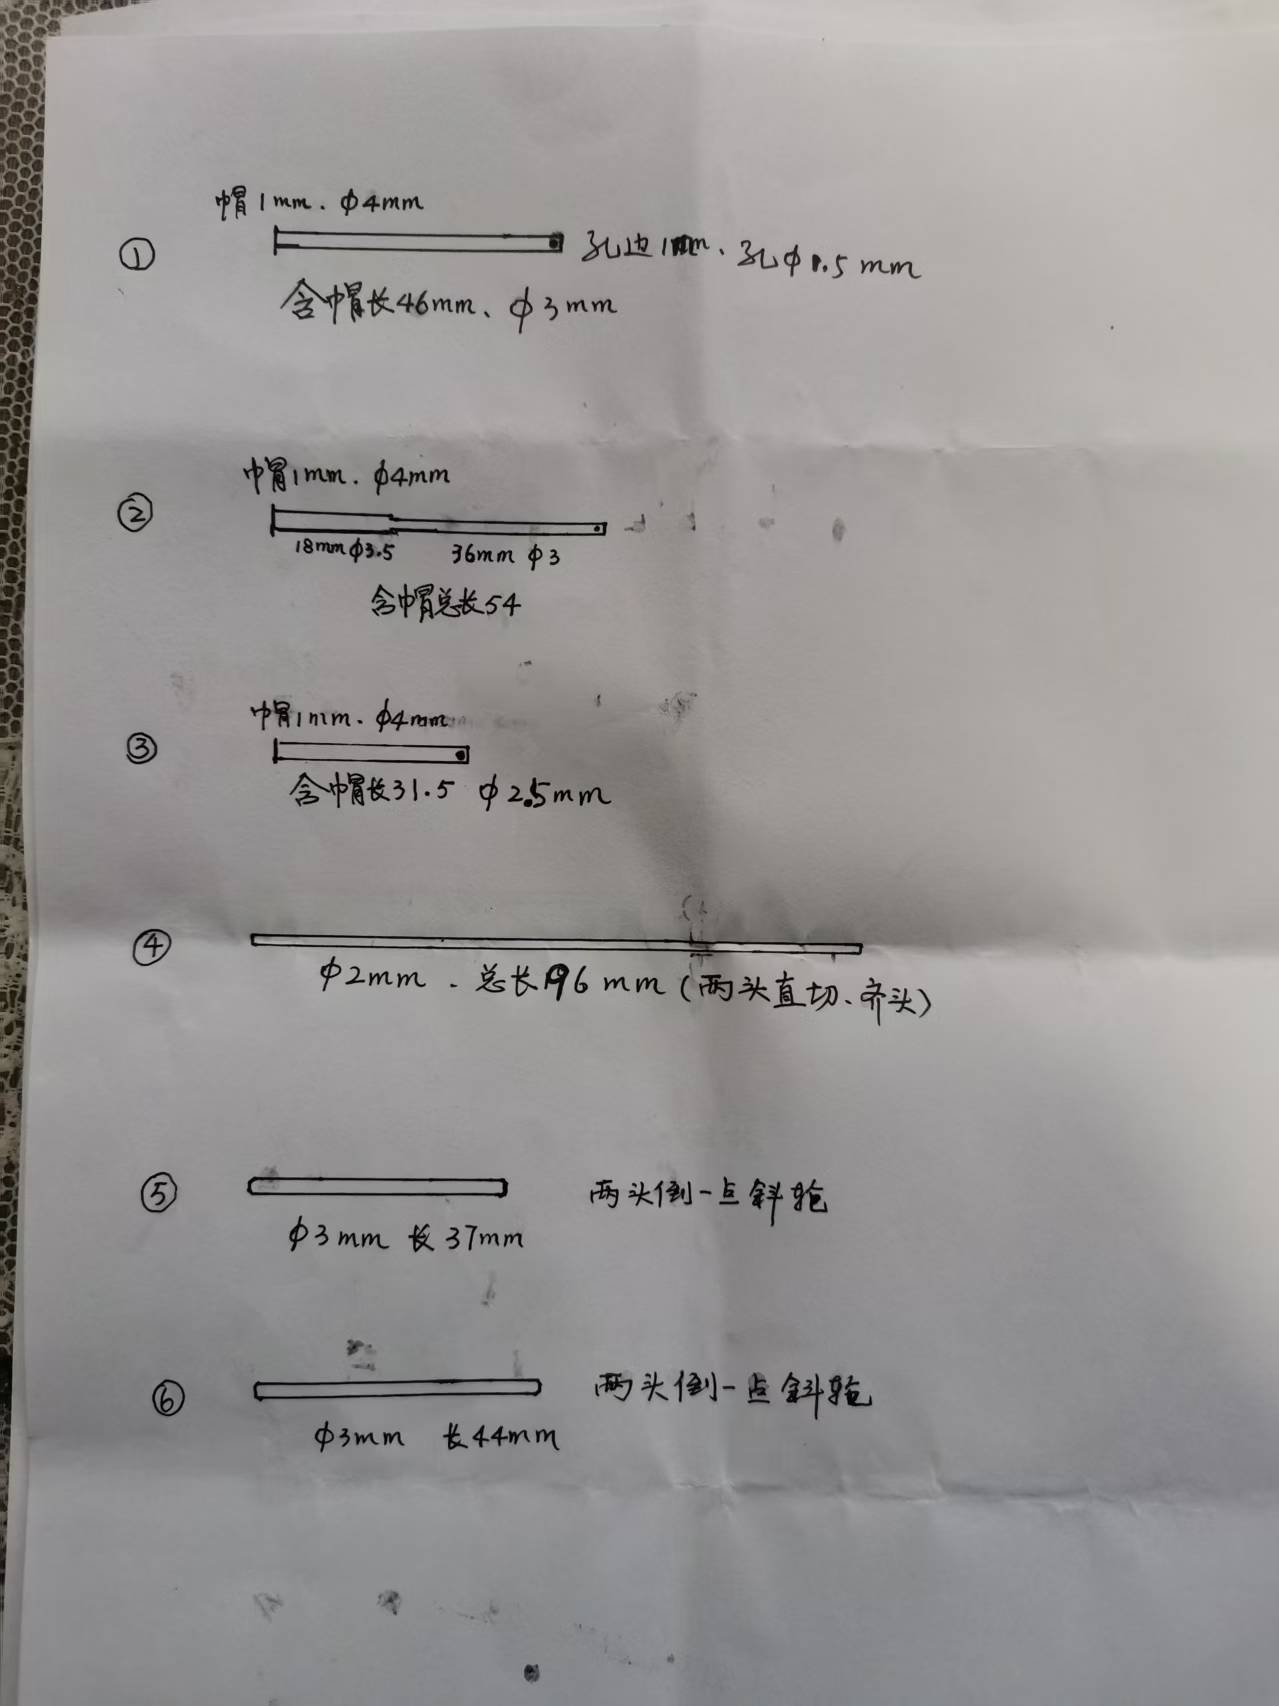 帽1mm.φ4mm
① 孔边1mm、孔φ1.5mm
含帽长46mm、φ3mm
帽1mm.φ4mm
②
18mmφ3.5 36mm φ3
含帽总长54
帽1mm.φ4mm
③
含帽长31.5 φ2.5mm
④
φ2mm.总长196mm(两头直切、齐头)
⑤ 两头倒一点斜
φ3mm 长37mm
⑥ 两头倒一点斜
φ3mm 长44mm